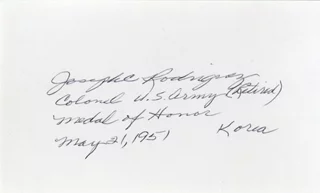 Joseph C Rodriguez
Colonel U.S. Army (Retired)
Medal of Honor
May 21, 1951 Korea